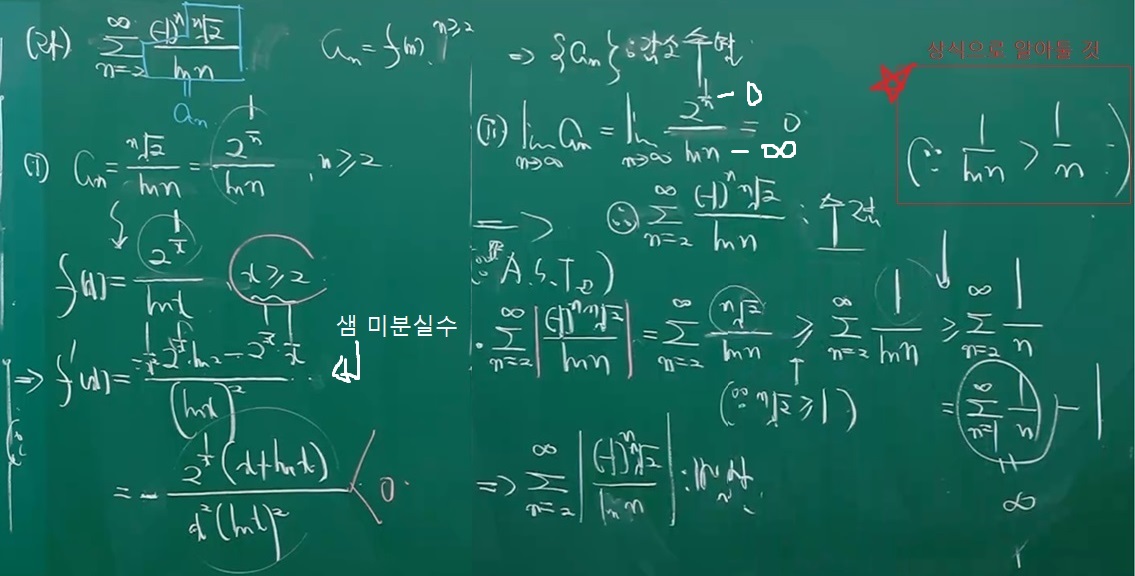 (라) ∞ Σ n=2 (-1)^n ⁿ√2 / ln n
a_n
a_n = f(n), n≥2
(i) a_n = ⁿ√2 / ln n = 2^(1/n) / ln n , n≥2.
f(x) = 2^(1/x) / ln x , x≥2
샘 미분실수
⇒ f'(x) = -1/x² 2^(1/x)·ln2 - 2^(1/x)·1/x / (ln x)²
= - 2^(1/x) (x+ln x) / x² (ln x)² < 0.
⇒ {a_n} : 감소수열
(ii) lim n→∞ a_n = lim n→∞ 2^(1/n) / ln n = 0
- 0
- ∞
⇒ ∴ ∞ Σ n=2 (-1)^n ⁿ√2 / ln n : 수렴
(∵ A.S.T)
∞ Σ n=2 | (-1)^n ⁿ√2 / ln n | = ∞ Σ n=2 ⁿ√2 / ln n ≥ ∞ Σ n=2 1 / ln n ≥ ∞ Σ n=2 1/n
(∵ ⁿ√2 ≥ 1)
= ∞ Σ n=1 1/n - 1
∞
⇒ ∞ Σ n=2 | (-1)^n ⁿ√2 / ln n | : 발산.
상식으로 알아둘 것
(∵ 1/ln n > 1/n)